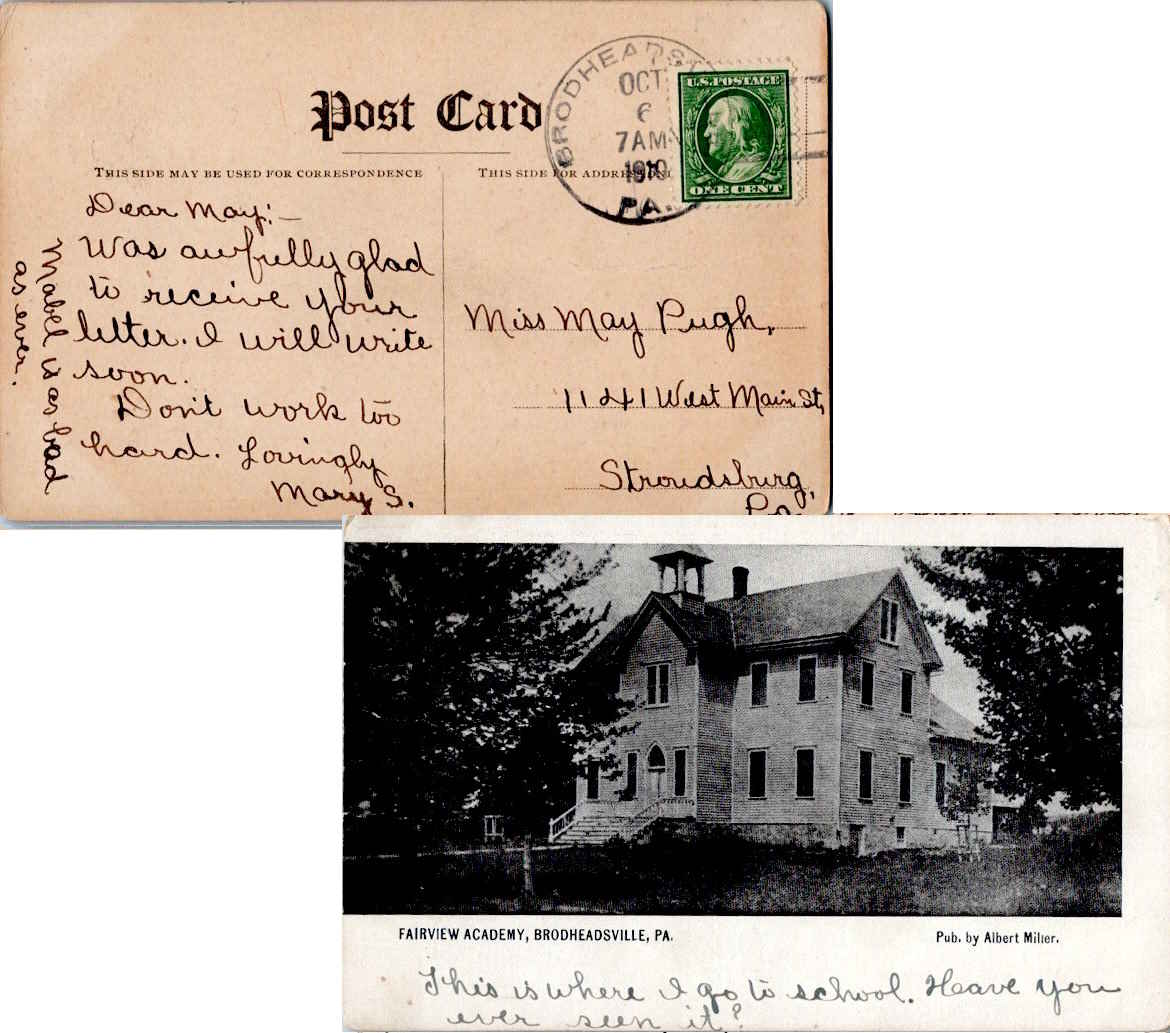 Post Card
THIS SIDE MAY BE USED FOR CORRESPONDENCE
THIS SIDE FOR ADDRESS
BRODHEADS
OCT
6
7AM
1910
PA.
U.S. POSTAGE
ONE CENT
Dear May:—
Was awfully glad
to receive your
letter. I will write
soon.
Don't work too
hard. Lovingly
Mary S.
Mabel is as bad
as ever.
Miss May Pugh,
1141 West Main St,
Stroudsburg,
Pa.
FAIRVIEW ACADEMY, BRODHEADSVILLE, PA.
Pub. by Albert Miller.
This is where I go to school. Heave you
ever seen it?